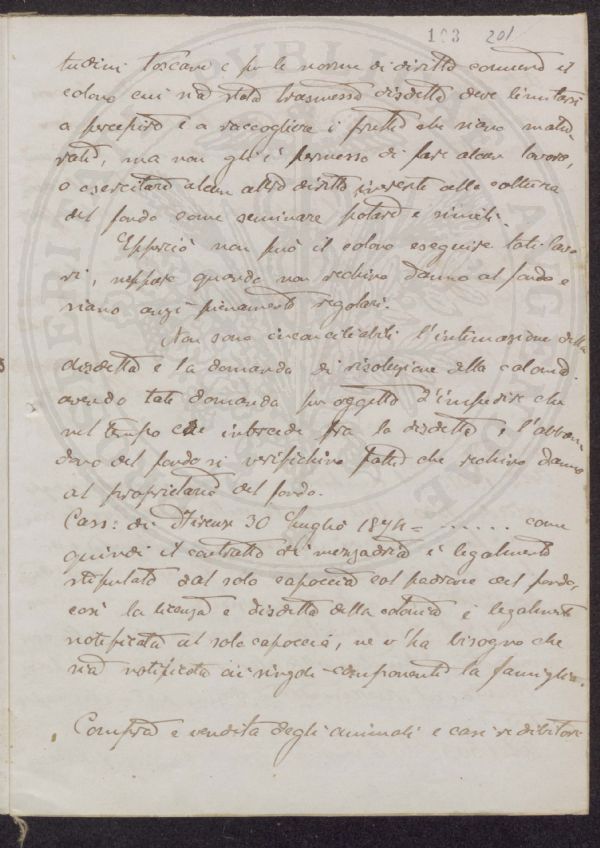 193 201
tudini toscane e per le norme di diritto comune il
colono cui sia stata trasmessa disdetta deve limitarsi
a percepire e a raccogliere i frutti che siano matu
rati, ma non gli è permesso di fare alcun lavoro,
o esercitare alcun altro diritto inerente alla coltura
del fondo come seminare potare e simili.
Epperciò non può il colono eseguire tali lavo
ri, neppure quando non rechino danno al fondo e
siano anzi pienamente regolari.
Non sono inconciliabili l'intimazione della
disdetta e la domanda di risoluzione della colonia.
avendo tale domanda per oggetto d'impedire che
nel tempo che intercede fra la disdetta e l'abban
dono del fondo si verifichino fatti che rechino danno
al proprietario del fondo.
Cass: di Firenze 30 Luglio 1874 = ...... come
quindi il contratto di mezzadria è legalmente
stipulato dal solo capoccia col padrone del fondo,
così la licenza e disdetta della colonia è legalmente
notificata al solo capoccia, ne v'ha bisogno che
sia notificata ai singoli componenti la famiglia.
Compra e vendita degli animali e casi redibitori